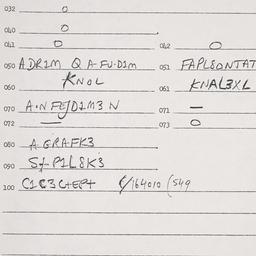 032 O
040 O
041 O 042 O
050 ADR1M Q A-FU-D1M 051 FAPLSONTAT
060 KNOL 061 KNAL3XL
070 A-NFEJD1M3N 071 —
072 — 073 O
080 A GRAFK3
090 Sf-P1L8K3
100 C1C3C+EP+ €/164010 (549